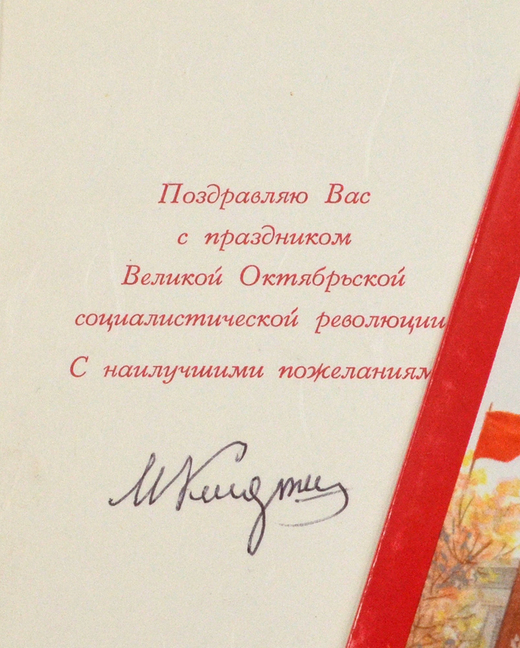 Поздравляю Вас
с праздником
Великой Октябрьской
социалистической революции
С наилучшими пожеланиям